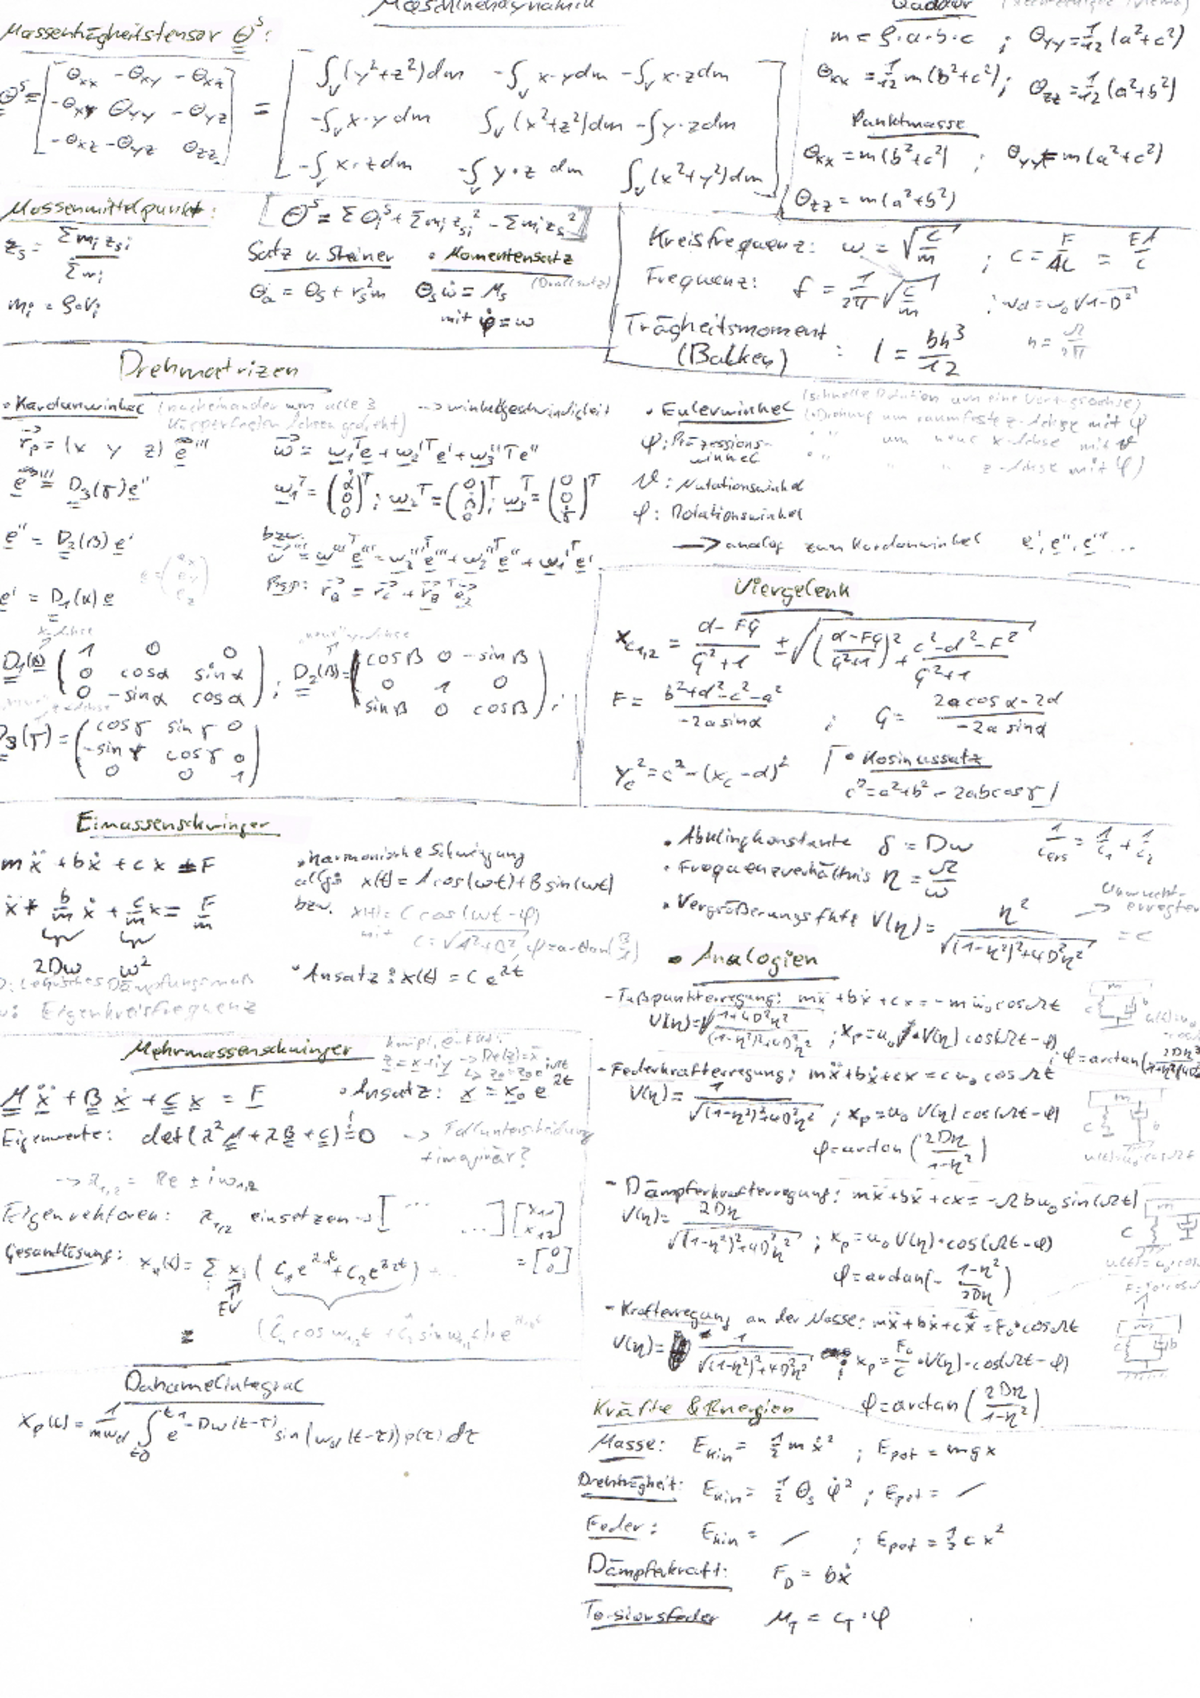 Maschinendynamik
Massenträgheitstensor Θ^S:
Θ^S = [Θxx -Θxy -Θxz
-Θxy Θyy -Θyz
-Θxz -Θyz Θzz]
= [∫v(y²+z²)dm -∫v x·y dm -∫v x·z dm
-∫v x·y dm ∫v(x²+z²)dm -∫y·z dm
-∫v x·z dm -∫v y·z dm ∫v(x²+y²)dm]
Quader
m = ρ·a·b·c ; Θyy = 1/12 (a²+c²)
Θxx = 1/12 m(b²+c²); Θzz = 1/12 (a²+b²)
Punktmasse
Θxx = m(b²+c²) ; Θyy = m(a²+c²)
Θzz = m(a²+b²)
Massenmittelpunkt:
zs = Σ mi zsi / Σ mi
mi = ρ·Vi
[Θ^S = Σ Θi^S + Σ mi zsi² - Σ mi zs²]
Satz v. Steiner
Θa = Θs + rs² m
• Momentensatz
(Drallsatz)
Θs ω̇ = Ms
mit φ̇ = ω
Kreisfrequenz: ω = √(c/m) ; c = F/ΔL = EA/L
Frequenz: f = 1/2π √(c/m) ; ωd = ω0 √(1-D²)
n = Ω/2π
Trägheitsmoment
(Balken) : I = bh³/12
Drehmatrizen
• Kardanwinkel (nacheinander um alle 3
körperfesten Achsen gedreht)
→ winkelgeschwindigkeit
rp = (x y z) e'''
e''' = D3(γ) e''
e'' = D2(β) e'
e' = D1(α) e
ω = ω1^T e + ω2'^T e' + ω3''^T e''
ω1^T = (α̇ 0 0)^T ; ω2^T = (0 β̇ 0)^T ; ω3^T = (0 0 γ̇)^T
bzw.
ω''' = ω'''^T e''' = ω3'''^T e''' + ω2''^T e'' + ω1'^T e'
e = (ex ey ez)
x-Achse
D1(α) = (1 0 0
0 cosα sinα
0 -sinα cosα) ;
"neue" y-Achse
D2(β) = (cosβ 0 -sinβ
0 1 0
sinβ 0 cosβ) ;
D3(γ) = (cosγ sinγ 0
-sinγ cosγ 0
0 0 1)
• Eulerwinkel (schnelle Rotation um eine Vorzugsachse)
(Drehung um raumfeste z-Achse mit φ
" " um neue x-Achse mit ϑ
" " z-Achse mit φ)
φ: Präzessions-
winkel
ϑ: Nutationswinkel
φ: Rotationswinkel
→ analog zum Kardanwinkel e', e'', e''' ...
Viergelenk
xc1,2 = (d-FG)/(G²+1) ± √(((d-FG)/(G²+1))² + (c²-d²-F²)/(G²+1))
F = (b²+d²-c²-a²)/(-2a sinα) ; G = (2a cosα - 2d)/(-2a sinα)
yc² = c² - (xc-d)²
• Kosinussatz
c² = a²+b² - 2ab cosγ
Einmassenschwinger
mẍ + bẋ + cx = F
ẍ + b/m ẋ + c/m x = F/m
2Dω ω²
D: Lehrsches Dämpfungsmaß
ω: Eigenkreisfrequenz
• harmonische Schwingung
allg: x(t) = A cos(ωt) + B sin(ωt)
bzw. x(t) = C cos(ωt-φ)
mit C = √(A²+B²), φ = arctan(B/A)
• Ansatz: x(t) = C e^λt
• Abklingkonstante δ = Dω
1/cers = 1/c1 + 1/c2
• Frequenzverhältnis η = Ω/ω
• Vergrößerungsfkt. V(η) = η²/√((1-η²)²+4D²η²)
→ Unwucht-
erreger
= c
• Analogien
- Fußpunkterregung: mẍ + bẋ + cx = -m ü0 cos Ωt
V(η) = √(1+4D²η²)/((1-η²)²+4D²η²) ; xp = u0·V(η)·cos(Ωt-φ)
- Federkrafterregung: mẍ + bẋ + cx = c u0 cos Ωt
V(η) = 1/√((1-η²)²+4D²η²) ; xp = u0 V(η) cos(Ωt-φ)
φ = arctan(2Dη/(1-η²))
- Dämpferkrafterregung: mẍ + bẋ + cx = -Ω b u0 sin(Ωt)
V(η) = 2Dη/√((1-η²)²+4D²η²) ; xp = u0 V(η)·cos(Ωt-φ)
φ = arctan(-(1-η²)/2Dη)
- Krafterregung an der Masse: mẍ + bẋ + cx = F0·cos Ωt
V(η) = 1/√((1-η²)²+4D²η²) ; xp = F0/c·V(η)·cos(Ωt-φ)
φ = arctan(2Dη/(1-η²))
Mehrmassenschwinger
M ẍ + B ẋ + C x = F
• Ansatz: x = x0 e^λt
Eigenwerte: det(λ²M + λB + C) = 0 → Fallunterscheidung
imaginär?
→ λ1,2 = Re ± iω1,2
Eigenvektoren: λ1,2 einsetzen → [... ...] [x11 x12] = [0 0]
Gesamtlösung: xn(t) = Σ xi (C1 e^λ1t + C2 e^λ2t) + ...
EV
Duhamelintegral
xp(t) = 1/(mωd) ∫ e^-Dω(t-τ) sin(ωd(t-τ)) p(τ) dτ
Kräfte & Energien
Masse: Ekin = 1/2 m ẋ² ; Epot = mgx
Drehträgheit: Ekin = 1/2 Θs φ̇² ; Epot = /
Feder: Ekin = / ; Epot = 1/2 c x²
Dämpferkraft: FD = bẋ
Torsionsfeder MT = cT·φ